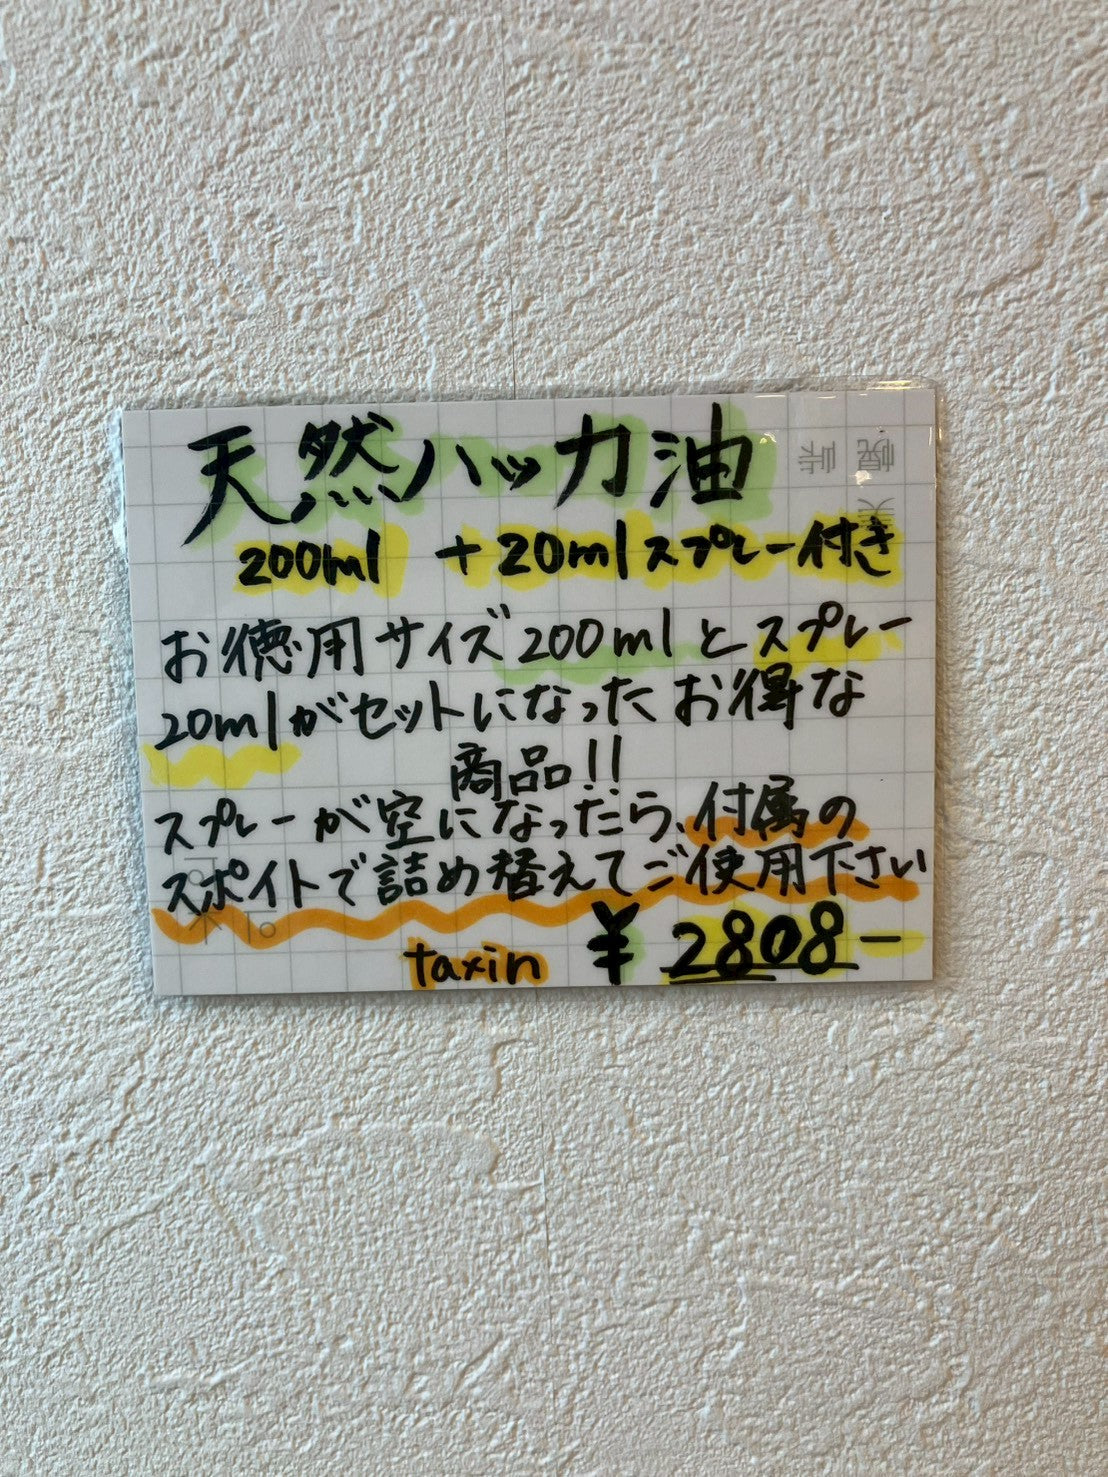 天然ハッカ油
200ml +20mlスプレー付き
お徳用サイズ200mlとスプレー
20mlがセットになったお得な
商品!!
スプレーが空になったら、付属の
スポイトで詰め替えてご使用下さい
taxin ¥2808-